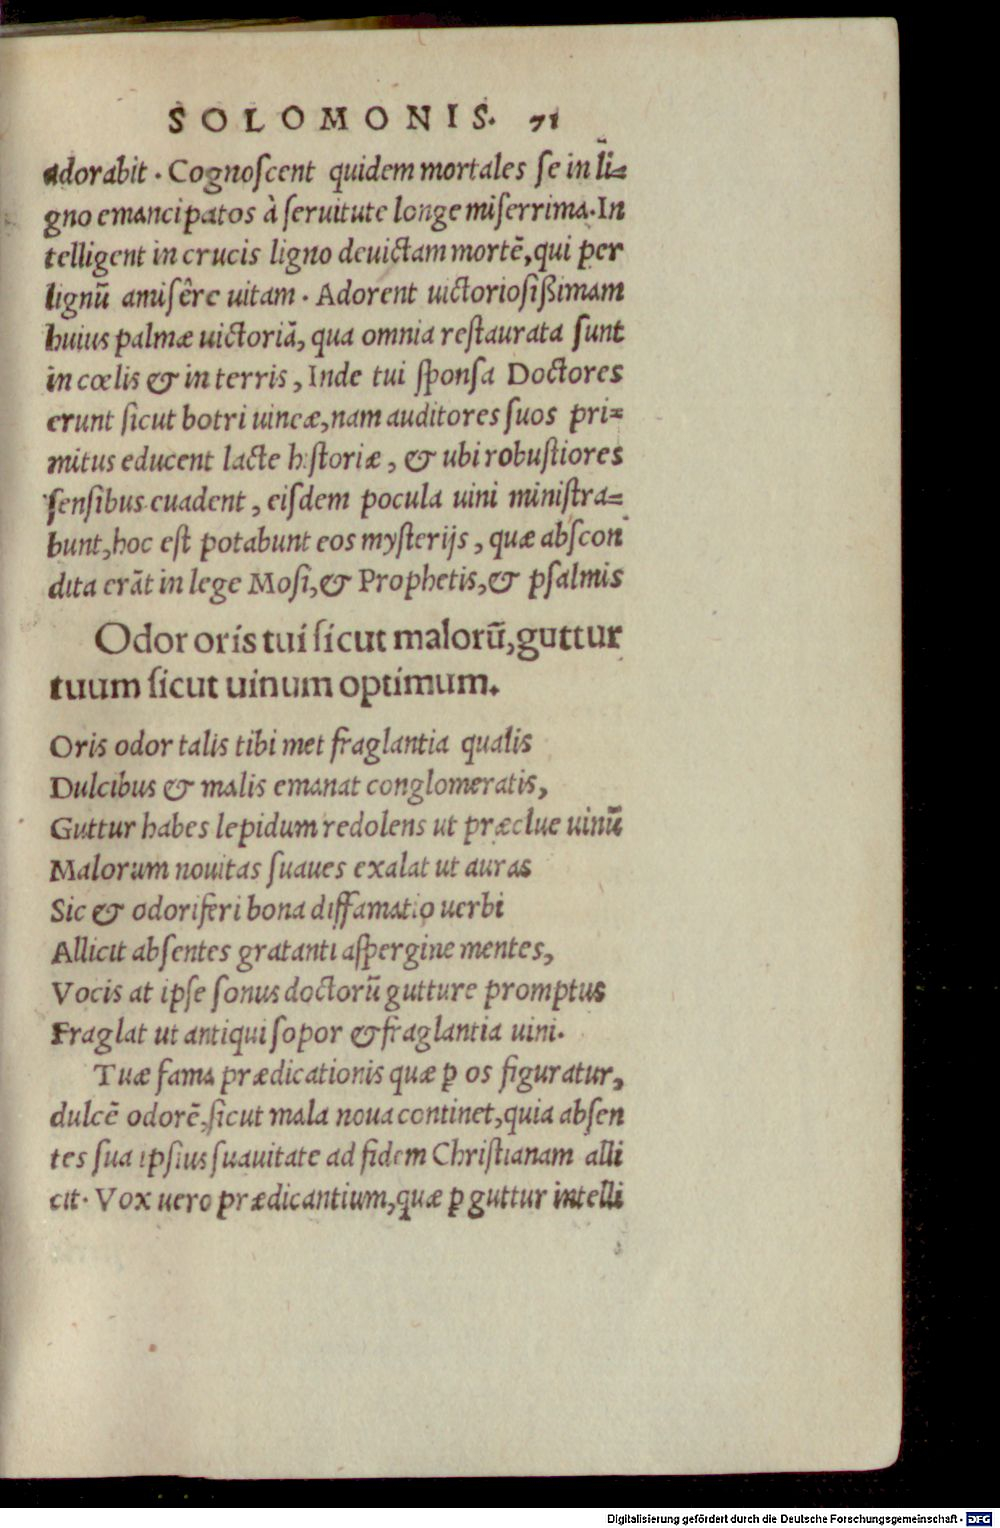 SOLOMONIS. 71
adorabit. Cognoſcent quidem mortales ſe in li=
gno emancipatos à ſeruitute longe miſerrima. In
telligent in crucis ligno deuictam mortē, qui per
lignū amiſêre uitam. Adorent uictorioſißimam
huius palmæ uictoriā, qua omnia reſtaurata ſunt
in cœlis & in terris, Inde tui ſponſa Doctores
erunt ſicut botri uineæ, nam auditores ſuos pri=
mitus educent lacte hiſtoriæ, & ubi robuſtiores
ſenſibus euadent, eiſdem pocula uini miniſtra=
bunt, hoc eſt potabunt eos myſterijs, quæ abſcon
dita erāt in lege Moſi, & Prophetis, & pſalmis
Odor oris tui ſicut malorū, guttur
tuum ſicut uinum optimum.
Oris odor talis tibi met fraglantia qualis
Dulcibus & malis emanat conglomeratis,
Guttur habes lepidum redolens ut præclue uinū
Malorum nouitas ſuaues exalat ut auras
Sic & odoriferi bona diffamatio uerbi
Allicit abſentes gratanti aſpergine mentes,
Vocis at ipſe ſonus doctorū gutture promptus
Fraglat ut antiqui ſopor & fraglantia uini.
Tuæ fama prædicationis quæ ꝑ os figuratur,
dulcē odorē, ſicut mala noua continet, quia abſen
tes ſua ipſius ſuauitate ad fidem Chriſtianam alli
cit. Vox uero prædicantium, quæ ꝑ guttur intelli
Digitalisierung gefördert durch die Deutsche Forschungsgemeinschaft - DFG